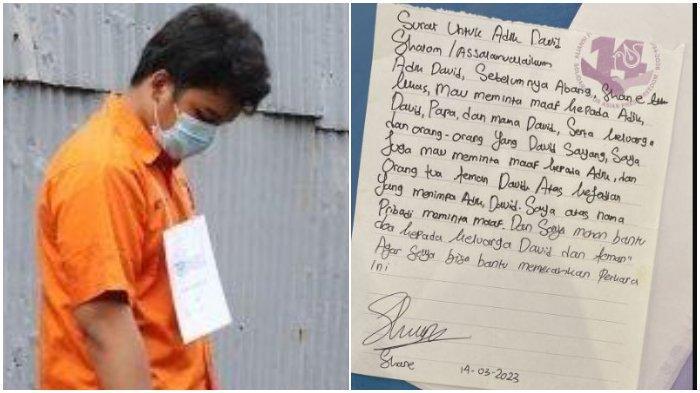 Surat Untuk Adik David
Shalom / Assalamualaikum
Adik David, Sebelumnya Abang, Shane
Lukas, Mau meminta maaf kepada Adik,
David, Papa, dan mama David, Serta keluarga
dan orang-orang yang David Sayang, Saya
Juga mau meminta maaf kepada Adik, dan
Orang tua teman David. Atas kejadian
Yang menimpa Adik David. Saya atas nama
Pribadi meminta maaf. Dan Saya mohon bantu
doa kepada keluarga David dan teman"
Agar Saya bisa bantu memecahkan Perkara
ini
Shane
14-03-2023